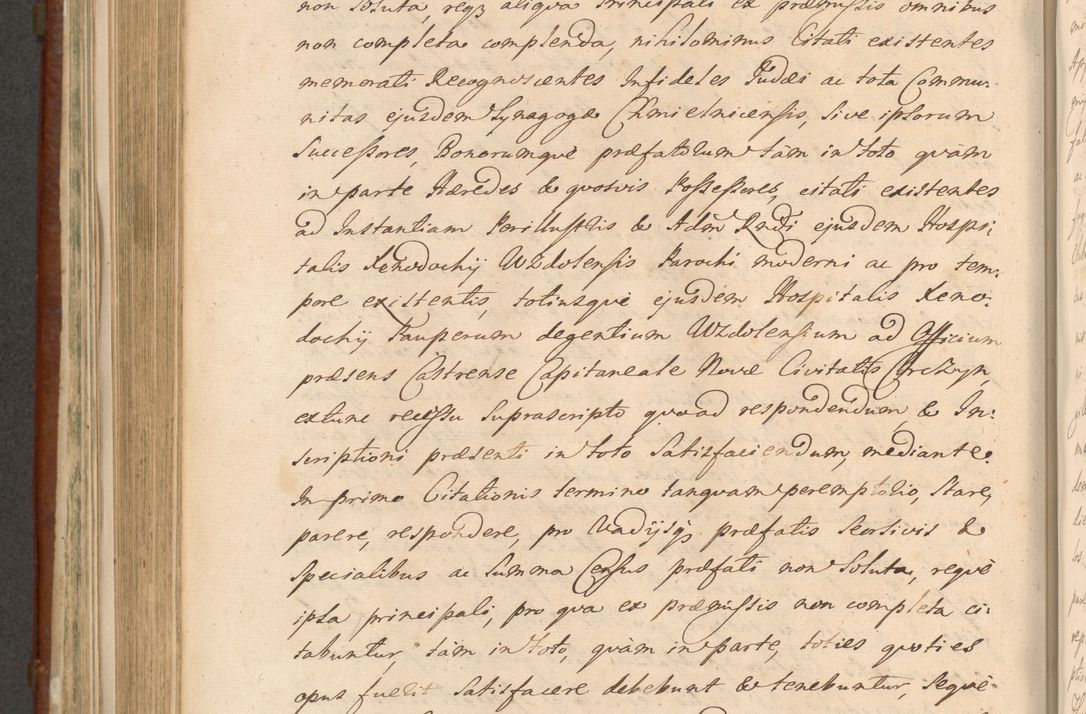 non soluta, reqz aliqva Principali ex præmissis omnibus
non completa complenda, nihilominus Citati existentes
memorati Recognoscentes Infideles Judæi ac tota Commu-
nitas ejusdem Synagogæ Chmielnicensis, sive ipsorum
Successores, Bonorumqvè præfatorum tàm in toto qvàm
in parte Hæredes & qvosvis Possessores, citati existentes
ad Instantiam Perillustris & Adm Rndi ejusdem Hospi:
talis Xenodochij Wzdolensis Parochi moderni ac pro tem:
pore existentis, totiusqvè ejusdem Hospitalis Xeno:
dochij Pauperum degentium Wzdolensium ad Officium
præsens Castrense Capitaneale Novæ Civitatis Corczyn,
extunc recessu suprascripto qvoad respondendum, & In:
scriptioni præsenti in toto Satisfaciendum, mediante.
In primo Citationis termino tanqvam peremptorio, Stare,
parere, respondere, pro Vadijsqz præfatis Seorsivis &
specialibus ac Summa Census præfati non Soluta, reqvè
ipsa principali, pro qva ex præmissis non completa ci:
tabuntur, tàm in toto, qvàm in parte, toties qvoties
opus fuerit Satisfacere debebunt & tenebuntur, Seqvè